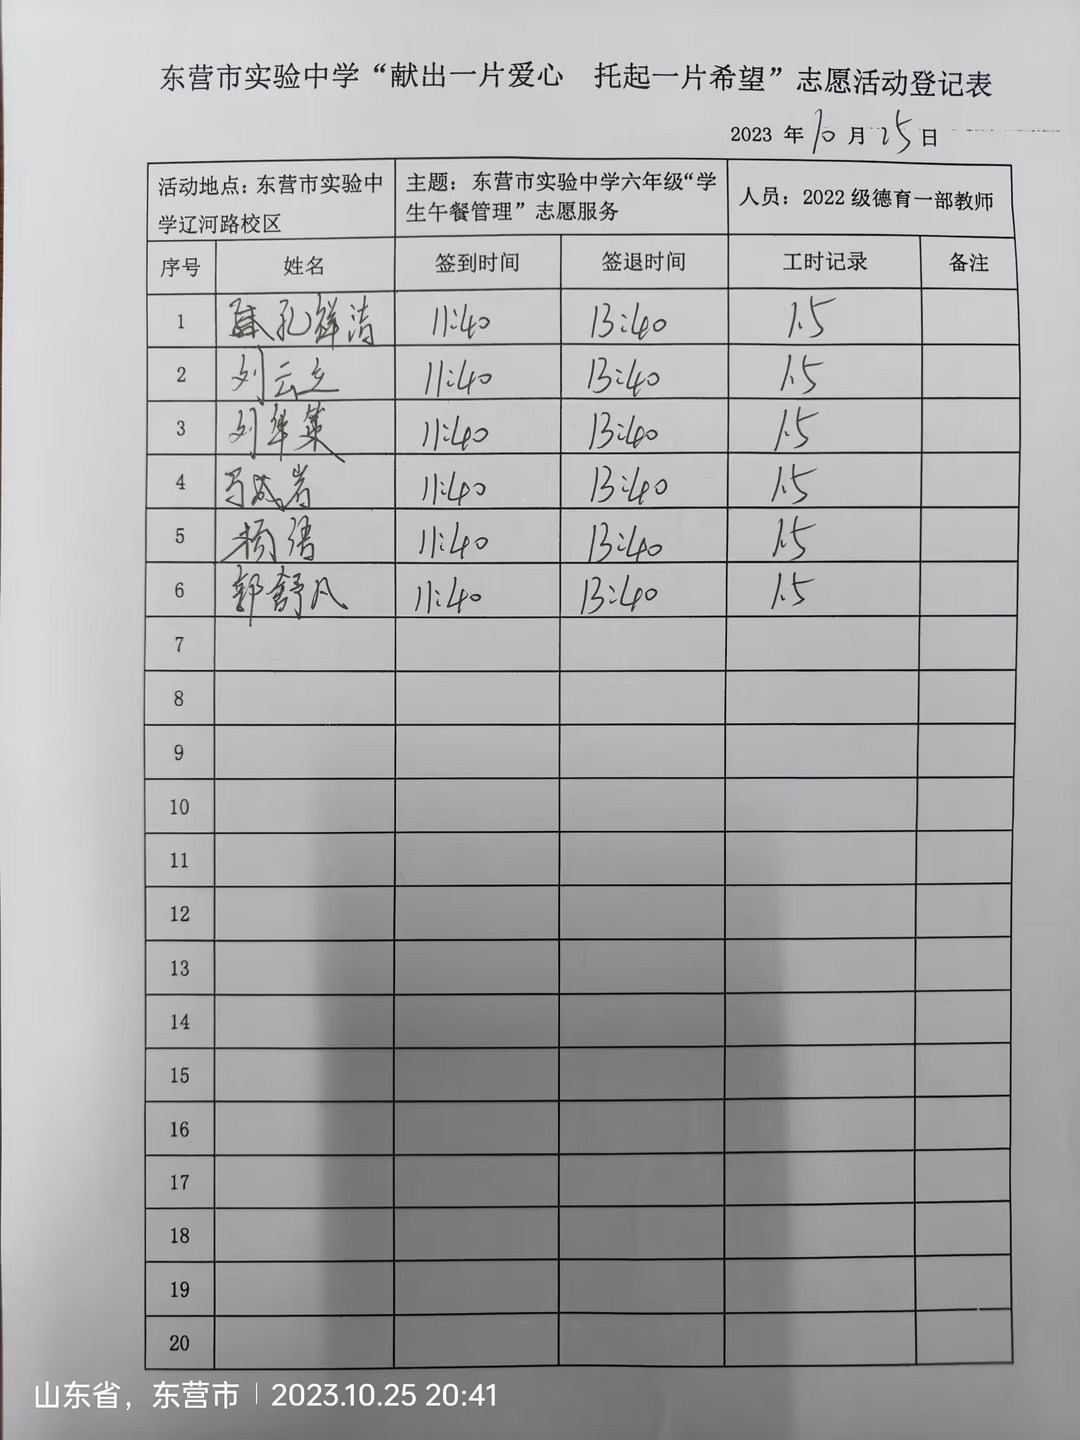 东营市实验中学“献出一片爱心 托起一片希望”志愿活动登记表
2023 年 10 月 25 日
活动地点：东营市实验中学辽河路校区 主题：东营市实验中学六年级“学生午餐管理”志愿服务 人员：2022 级德育一部教师
序号 姓名 签到时间 签退时间 工时记录 备注
1 孔祥清 11:40 13:40 1.5
2 刘云立 11:40 13:40 1.5
3 刘华 11:40 13:40 1.5
4 11:40 13:40 1.5
5 杨 11:40 13:40 1.5
6 郭舒凡 11:40 13:40 1.5
7
8
9
10
11
12
13
14
15
16
17
18
19
20
山东省，东营市 | 2023.10.25 20:41